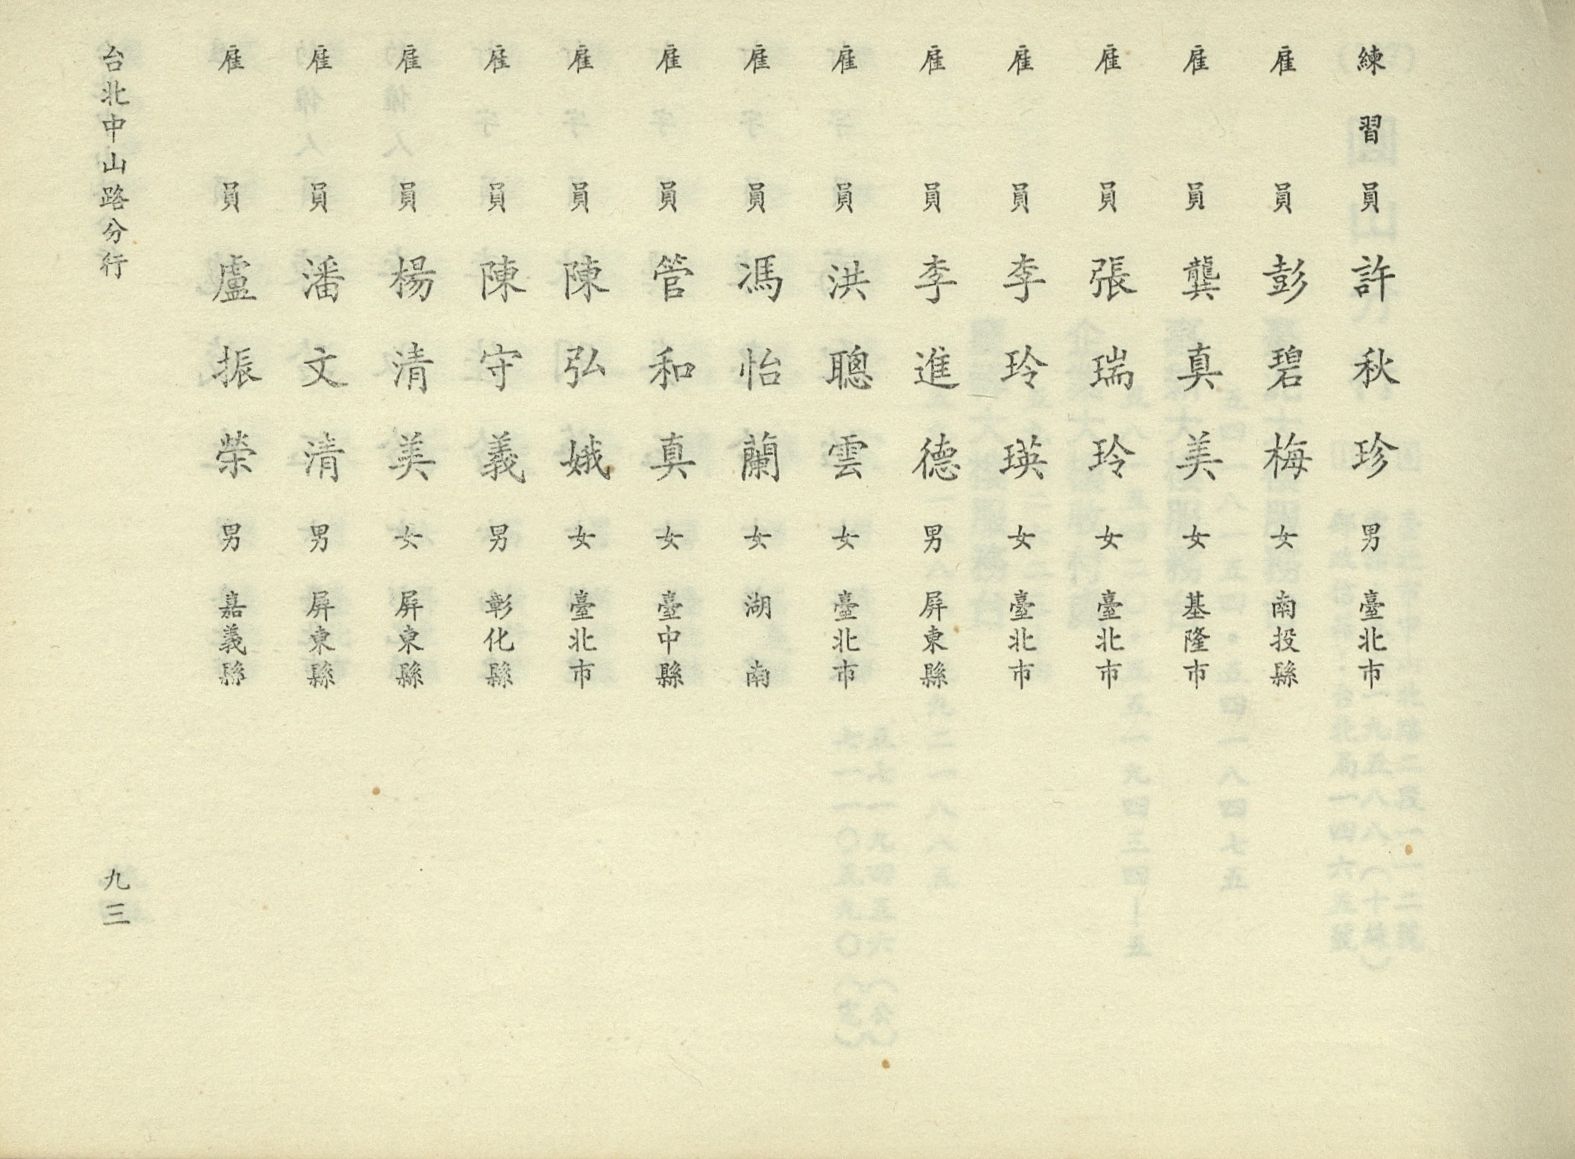 練習員許秋珍男臺北市
雇員彭碧梅女南投縣
雇員龔真美女基隆市
雇員張瑞玲女臺北市
雇員李玲瑛女臺北市
雇員李進德男屏東縣
雇員洪聰雲女臺北市
雇員馮怡蘭女湖南
雇員管和真女臺中縣
雇員陳弘娥女臺北市
雇員陳守義男彰化縣
雇員楊清美女屏東縣
雇員潘文清男屏東縣
雇員盧振榮男嘉義縣
台北中山路分行 九三